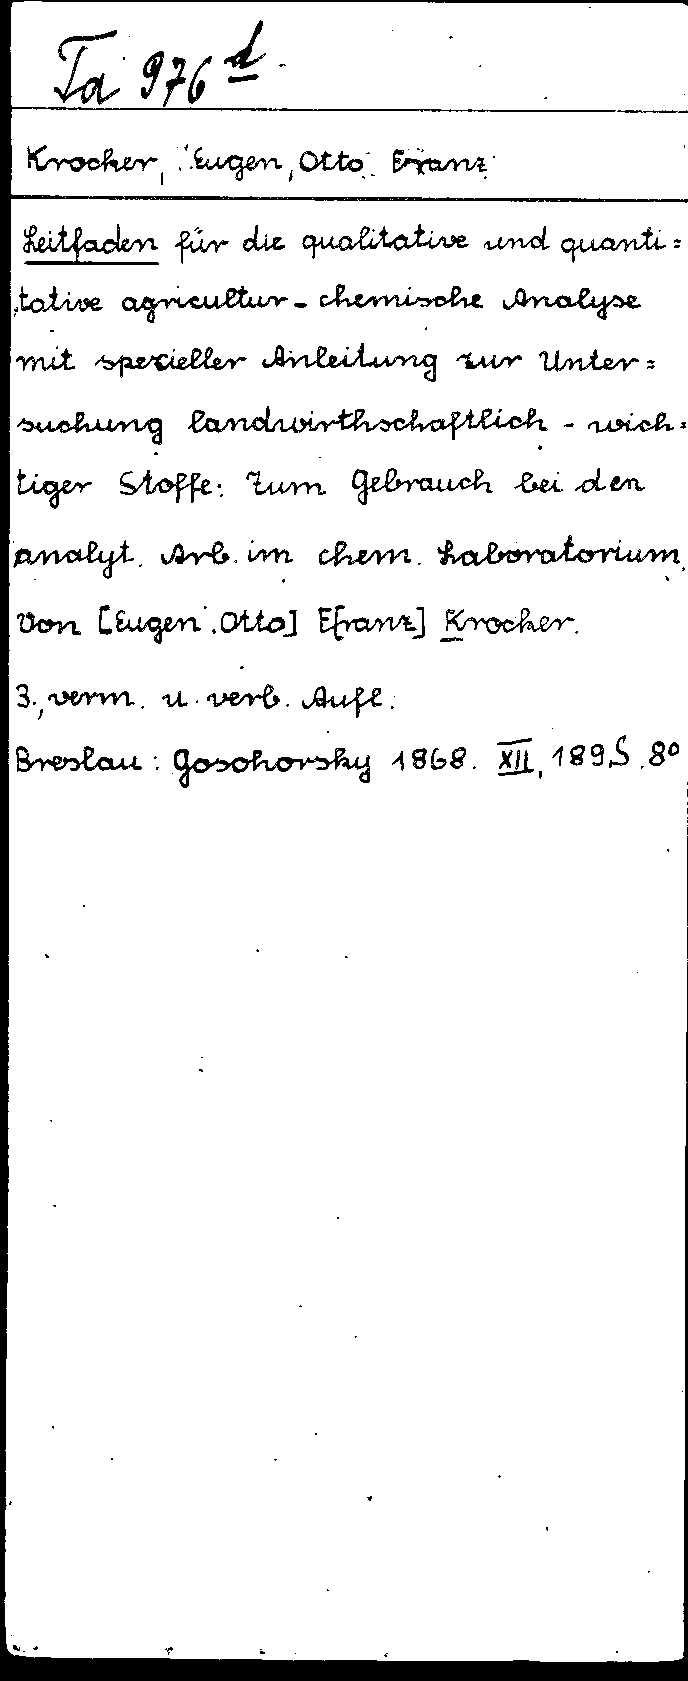 Ta 976 d
Krocker, Eugen, Otto Franz
Leitfaden für die qualitative und quanti=
tative agricultur-chemische Analyse
mit spezieller Anleitung zur Unter=
suchung landwirthschaftlich-wich=
tiger Stoffe: Zum Gebrauch bei den
analyt. Arb. im chem. Laboratorium
von [Eugen Otto] F[ranz] Krocker.
3., verm. u. verb. Aufl.
Breslau: Gosohorsky 1868. XII, 189 S. 8°